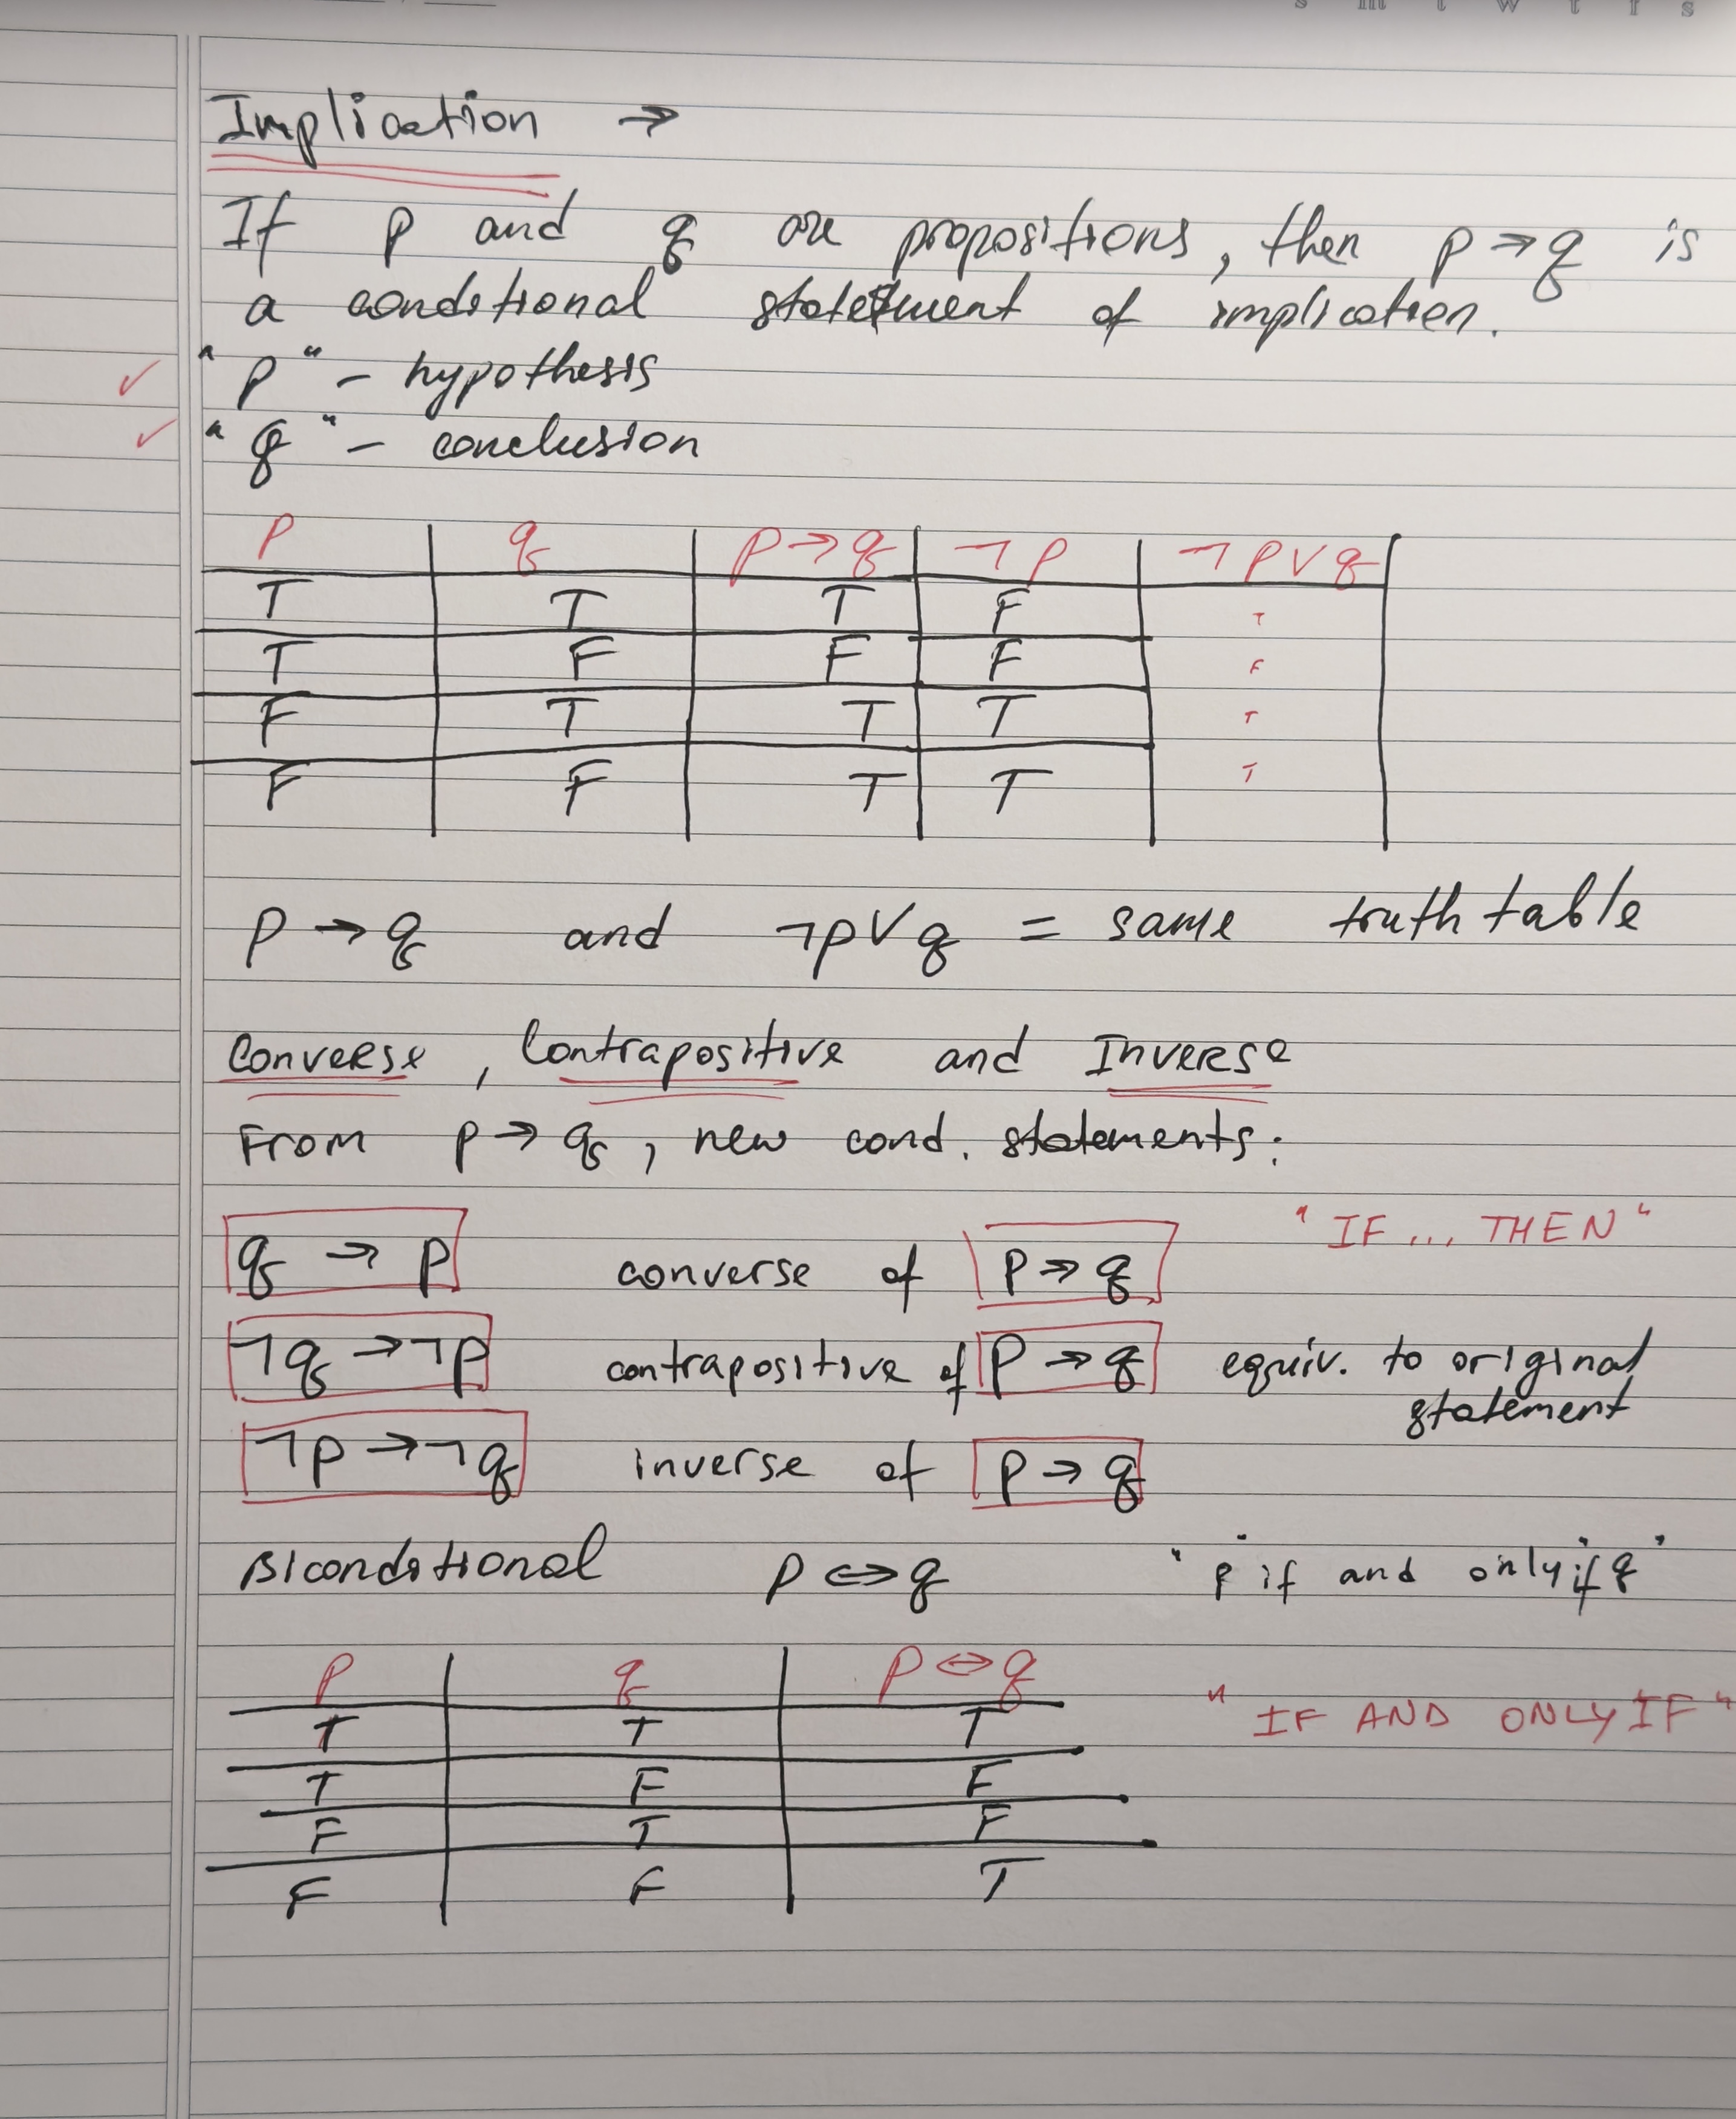 s m t w t f s
Implication →
If p and q are propositions, then p → q is
a conditional statetment of implication.
"p" - hypothesis
"q" - conclusion
p q p → q ¬p ¬p∨q
T T T F T
T F F F F
F T T T T
F F T T T
p → q and ¬p∨q = same truth table
Converse, Contrapositive and Inverse
From p → q, new cond. statements:
"IF ... THEN"
q → p converse of p → q
¬q → ¬p contrapositive of p → q equiv. to original
statement
¬p → ¬q inverse of p → q
Biconditional p ↔ q "p if and only if q"
p q p ↔ q
"IF AND ONLY IF"
T T T
T F F
F T F
F F T